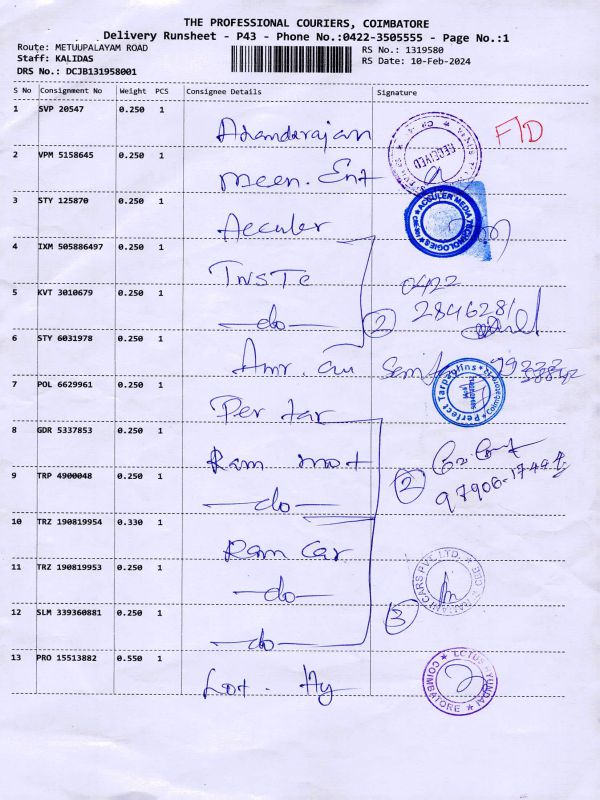 THE PROFESSIONAL COURIERS, COIMBATORE
Delivery Runsheet - P43 - Phone No.:0422-3505555 - Page No.:1
Route: METUUPALAYAM ROAD
RS No.: 1319580
Staff: KALIDAS
RS Date: 10-Feb-2024
DRS No.: DCJB131958001
S No Consignment No Weight PCS Consignee Details Signature
1 SVP 20547 0.250 1
RECEIVED
F/D
2 VPM 5158645 0.250 1
Meen. Ent
3 STY 125870 0.250 1
Acculer
ACSULER MEDIA TECHNOLOGIES
4 IXM 505886497 0.250 1
TNSTC
0422
2846281
5 KVT 3010679 0.250 1
-do-
2
6 STY 6031978 0.250 1
Perfect Tarpaulins Coimbatore
7 POL 6629961 0.250 1
Per tar
8 GDR 5337853 0.250 1
Ram mot
9 TRP 4900048 0.250 1
-do-
2
10 TRZ 190819954 0.330 1
Ram Car
11 TRZ 190819953 0.250 1
-do-
CARS PVT. LTD.
12 SLM 339360881 0.250 1
-do-
3
13 PRO 15513882 0.550 1
Lot. Hy
LOTUS HYUNDAI COIMBATORE